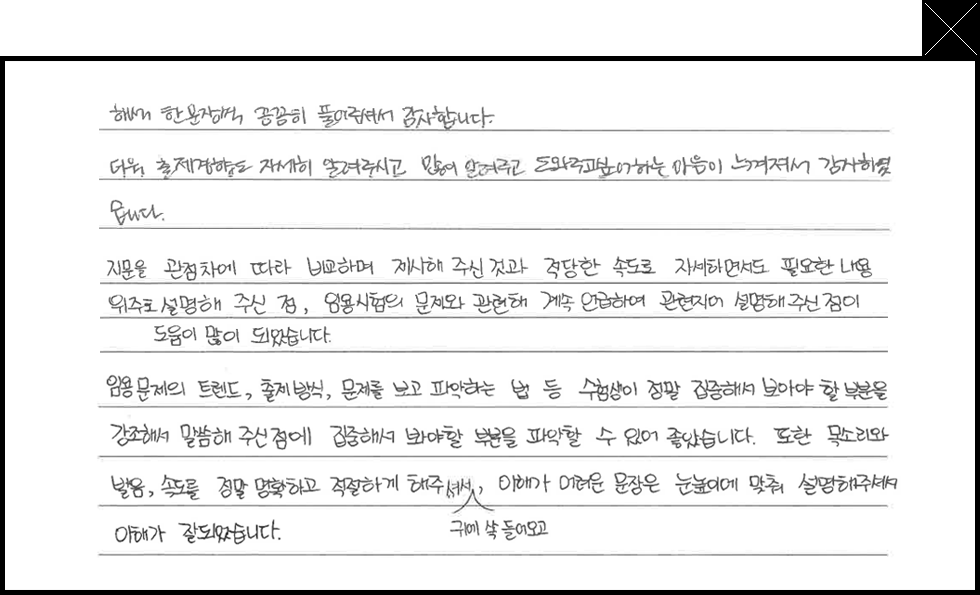 해서 한문장씩 꼼꼼히 풀어주셔서 감사합니다.
더욱, 출제경향도 자세히 알려주시고 많이 알려주고 도와주고싶어하는 마음이 느껴져서 감사하였
습니다.
지문을 관점차에 따라 비교하며 제시해 주신 것과 적당한 속도로 자세하면서도 필요한 내용
위주로 설명해 주신 점, 임용시험의 문제와 관련해 계속 언급하여 관련지어 설명해 주신 점이
도움이 많이 되었습니다.
임용문제의 트렌드, 출제방식, 문제를 보고 파악하는 법 등 수험생이 정말 집중해서 보아야 할 부분을
강조해서 말씀해 주신 점에 집중해서 봐야할 부분을 파악할 수 있어 좋았습니다. 또한 목소리와
발음, 속도를 정말 명확하고 적절하게 해주셔서, 이해가 어려운 문장은 눈높이에 맞춰 설명해주셔서
귀에 쏙 들어오고
이해가 잘되었습니다.